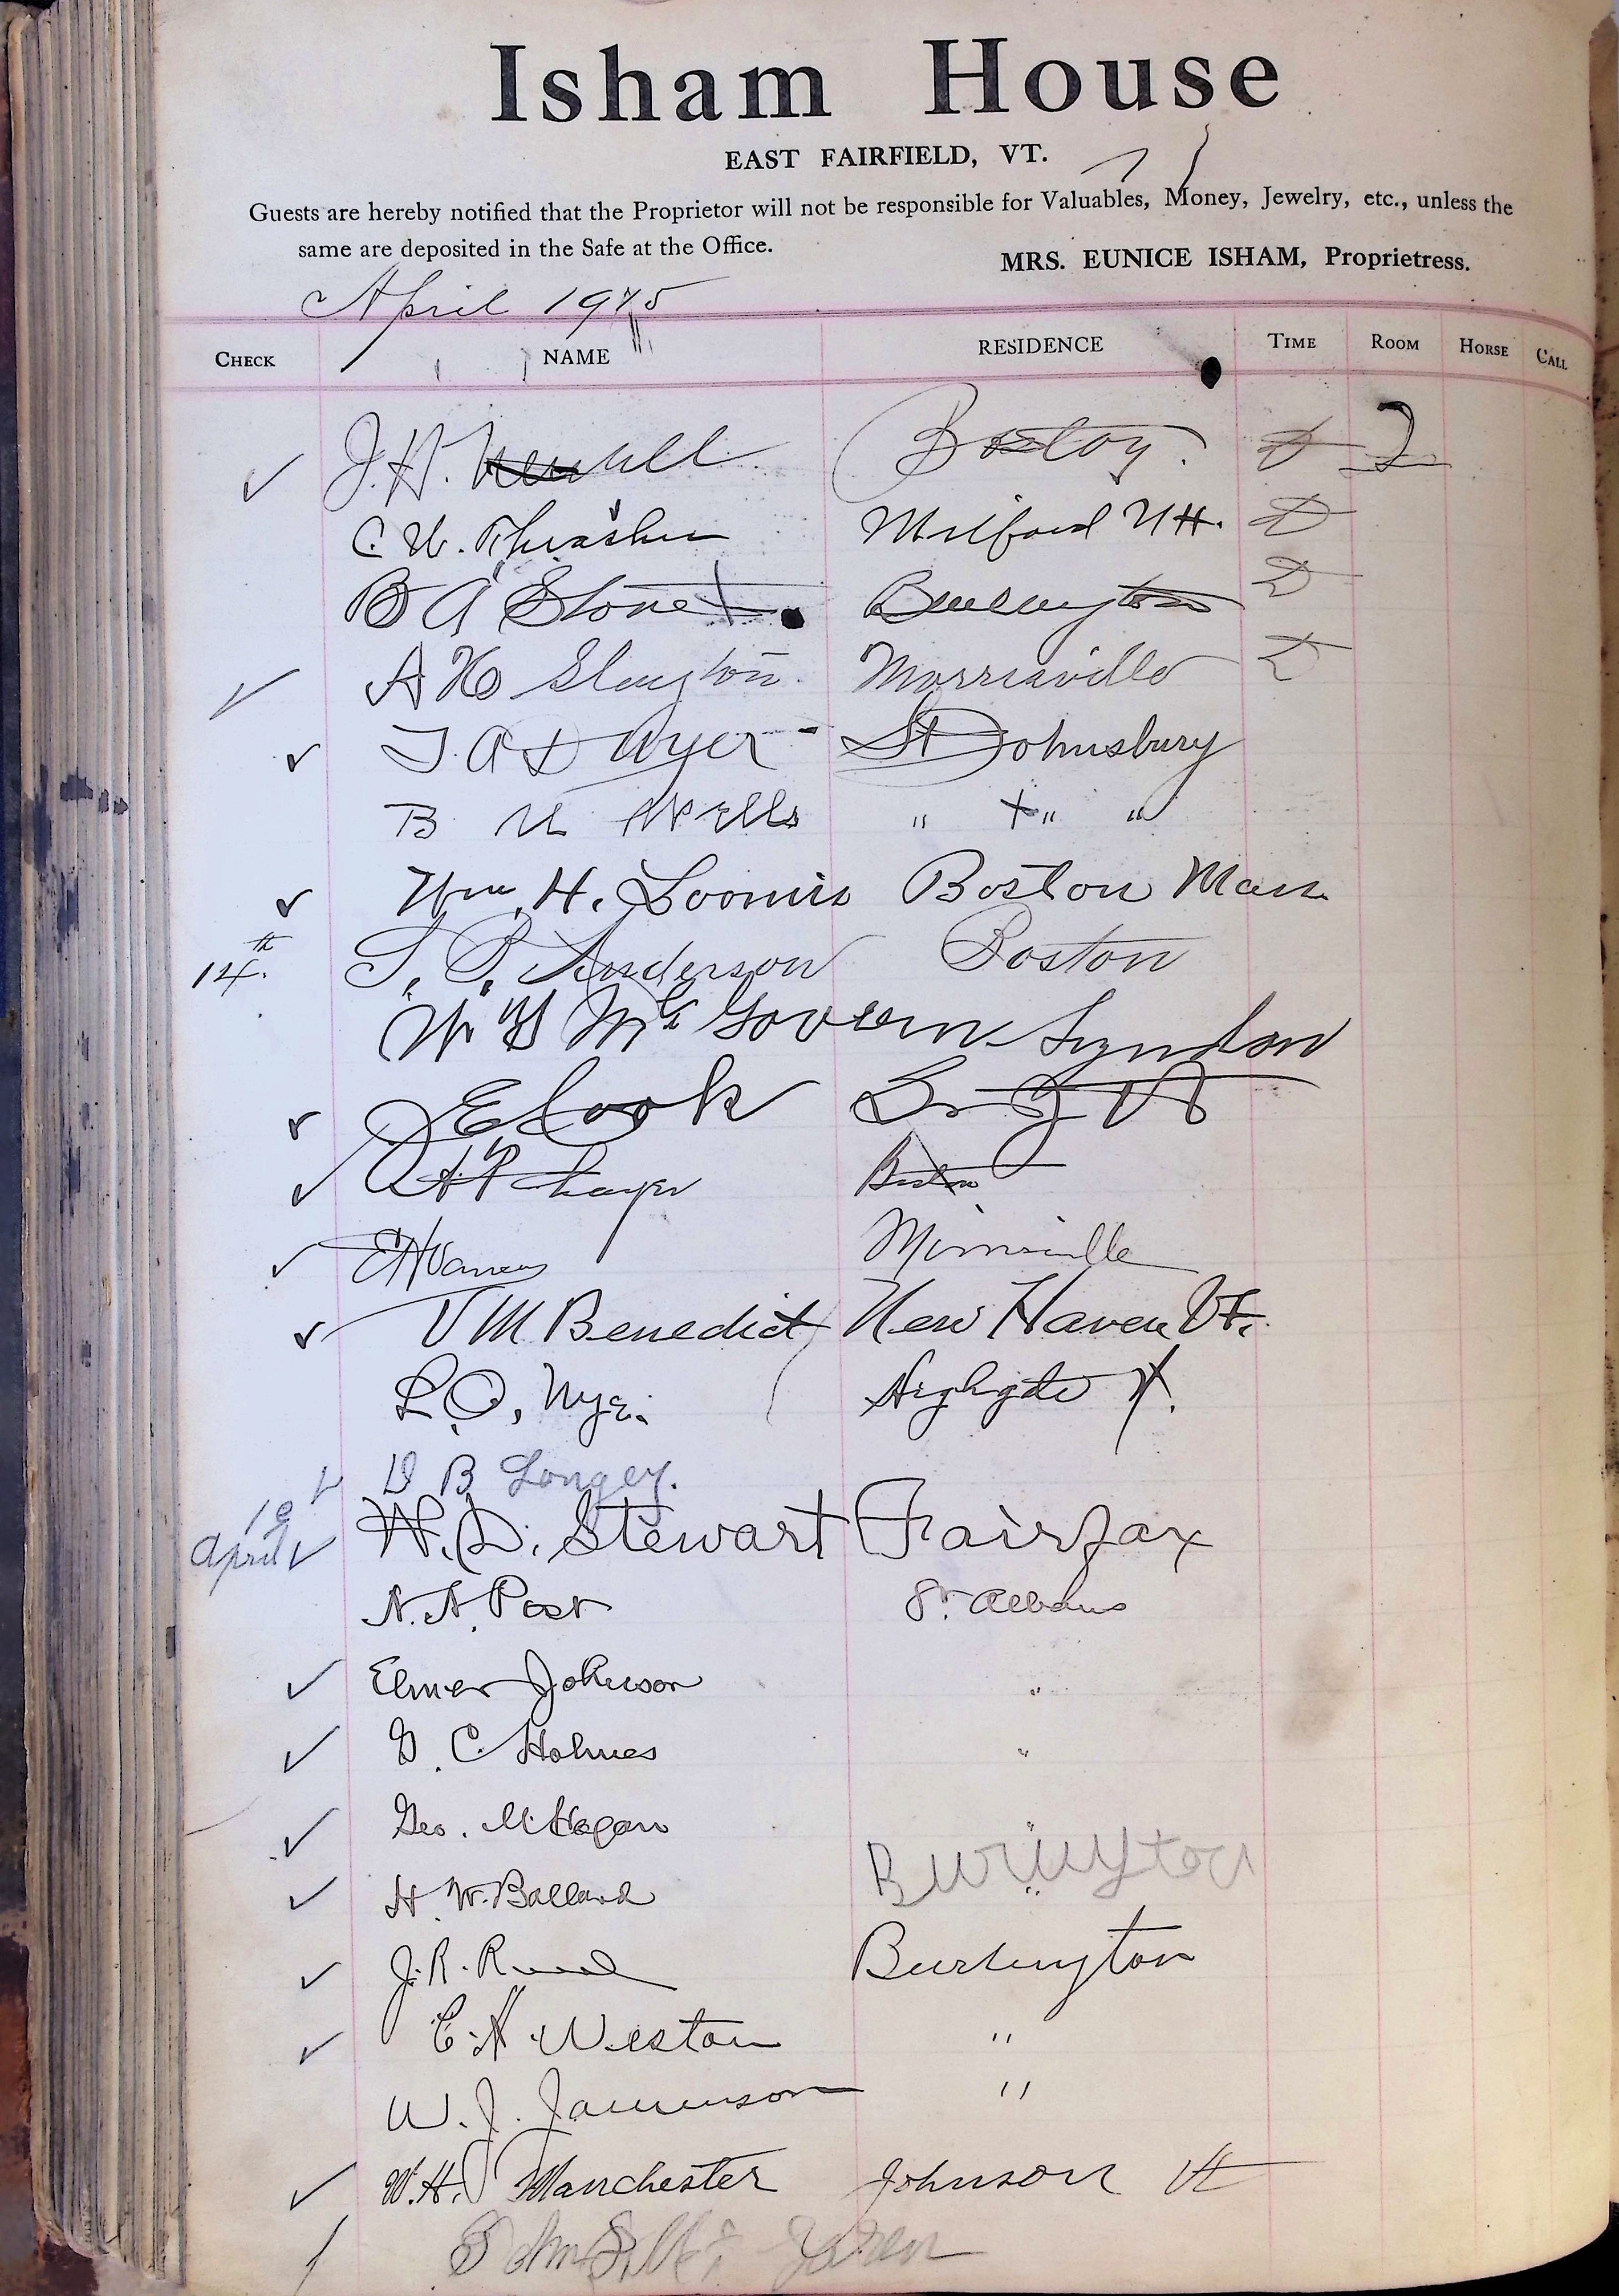 Isham House
EAST FAIRFIELD, VT.
Guests are hereby notified that the Proprietor will not be responsible for Valuables, Money, Jewelry, etc., unless the
same are deposited in the Safe at the Office.
MRS. EUNICE ISHAM, Proprietress.
April
CHECK NAME RESIDENCE TIME ROOM HORSE CALL
J.H. Boston. D 2
C. W. Thrasher Milford NH. D
B A Stone Burlington D
A H Slayton Morrisville D
T. A. Dwyer St Johnsbury
B Wells " " "
Wm. H. Loomis Boston Mass
14th. S. P. Anderson Boston
W H McGovern Lyndon
E Cook
A P Thayer Boston
E H Morrisville
V M Benedict New Haven Vt.
L.O. Nye. Highgate Vt.
D B Longey.
April W. D. Stewart Fairfax
N. A. Post St. Albans
Elmer Johnson "
G. C. Holmes "
Geo. M. Hogan "
H. W. Ballard " Burlington
J. R. Burlington
C. H. Weston "
W. J. Jamieson "
W. H. Manchester Johnson Vt